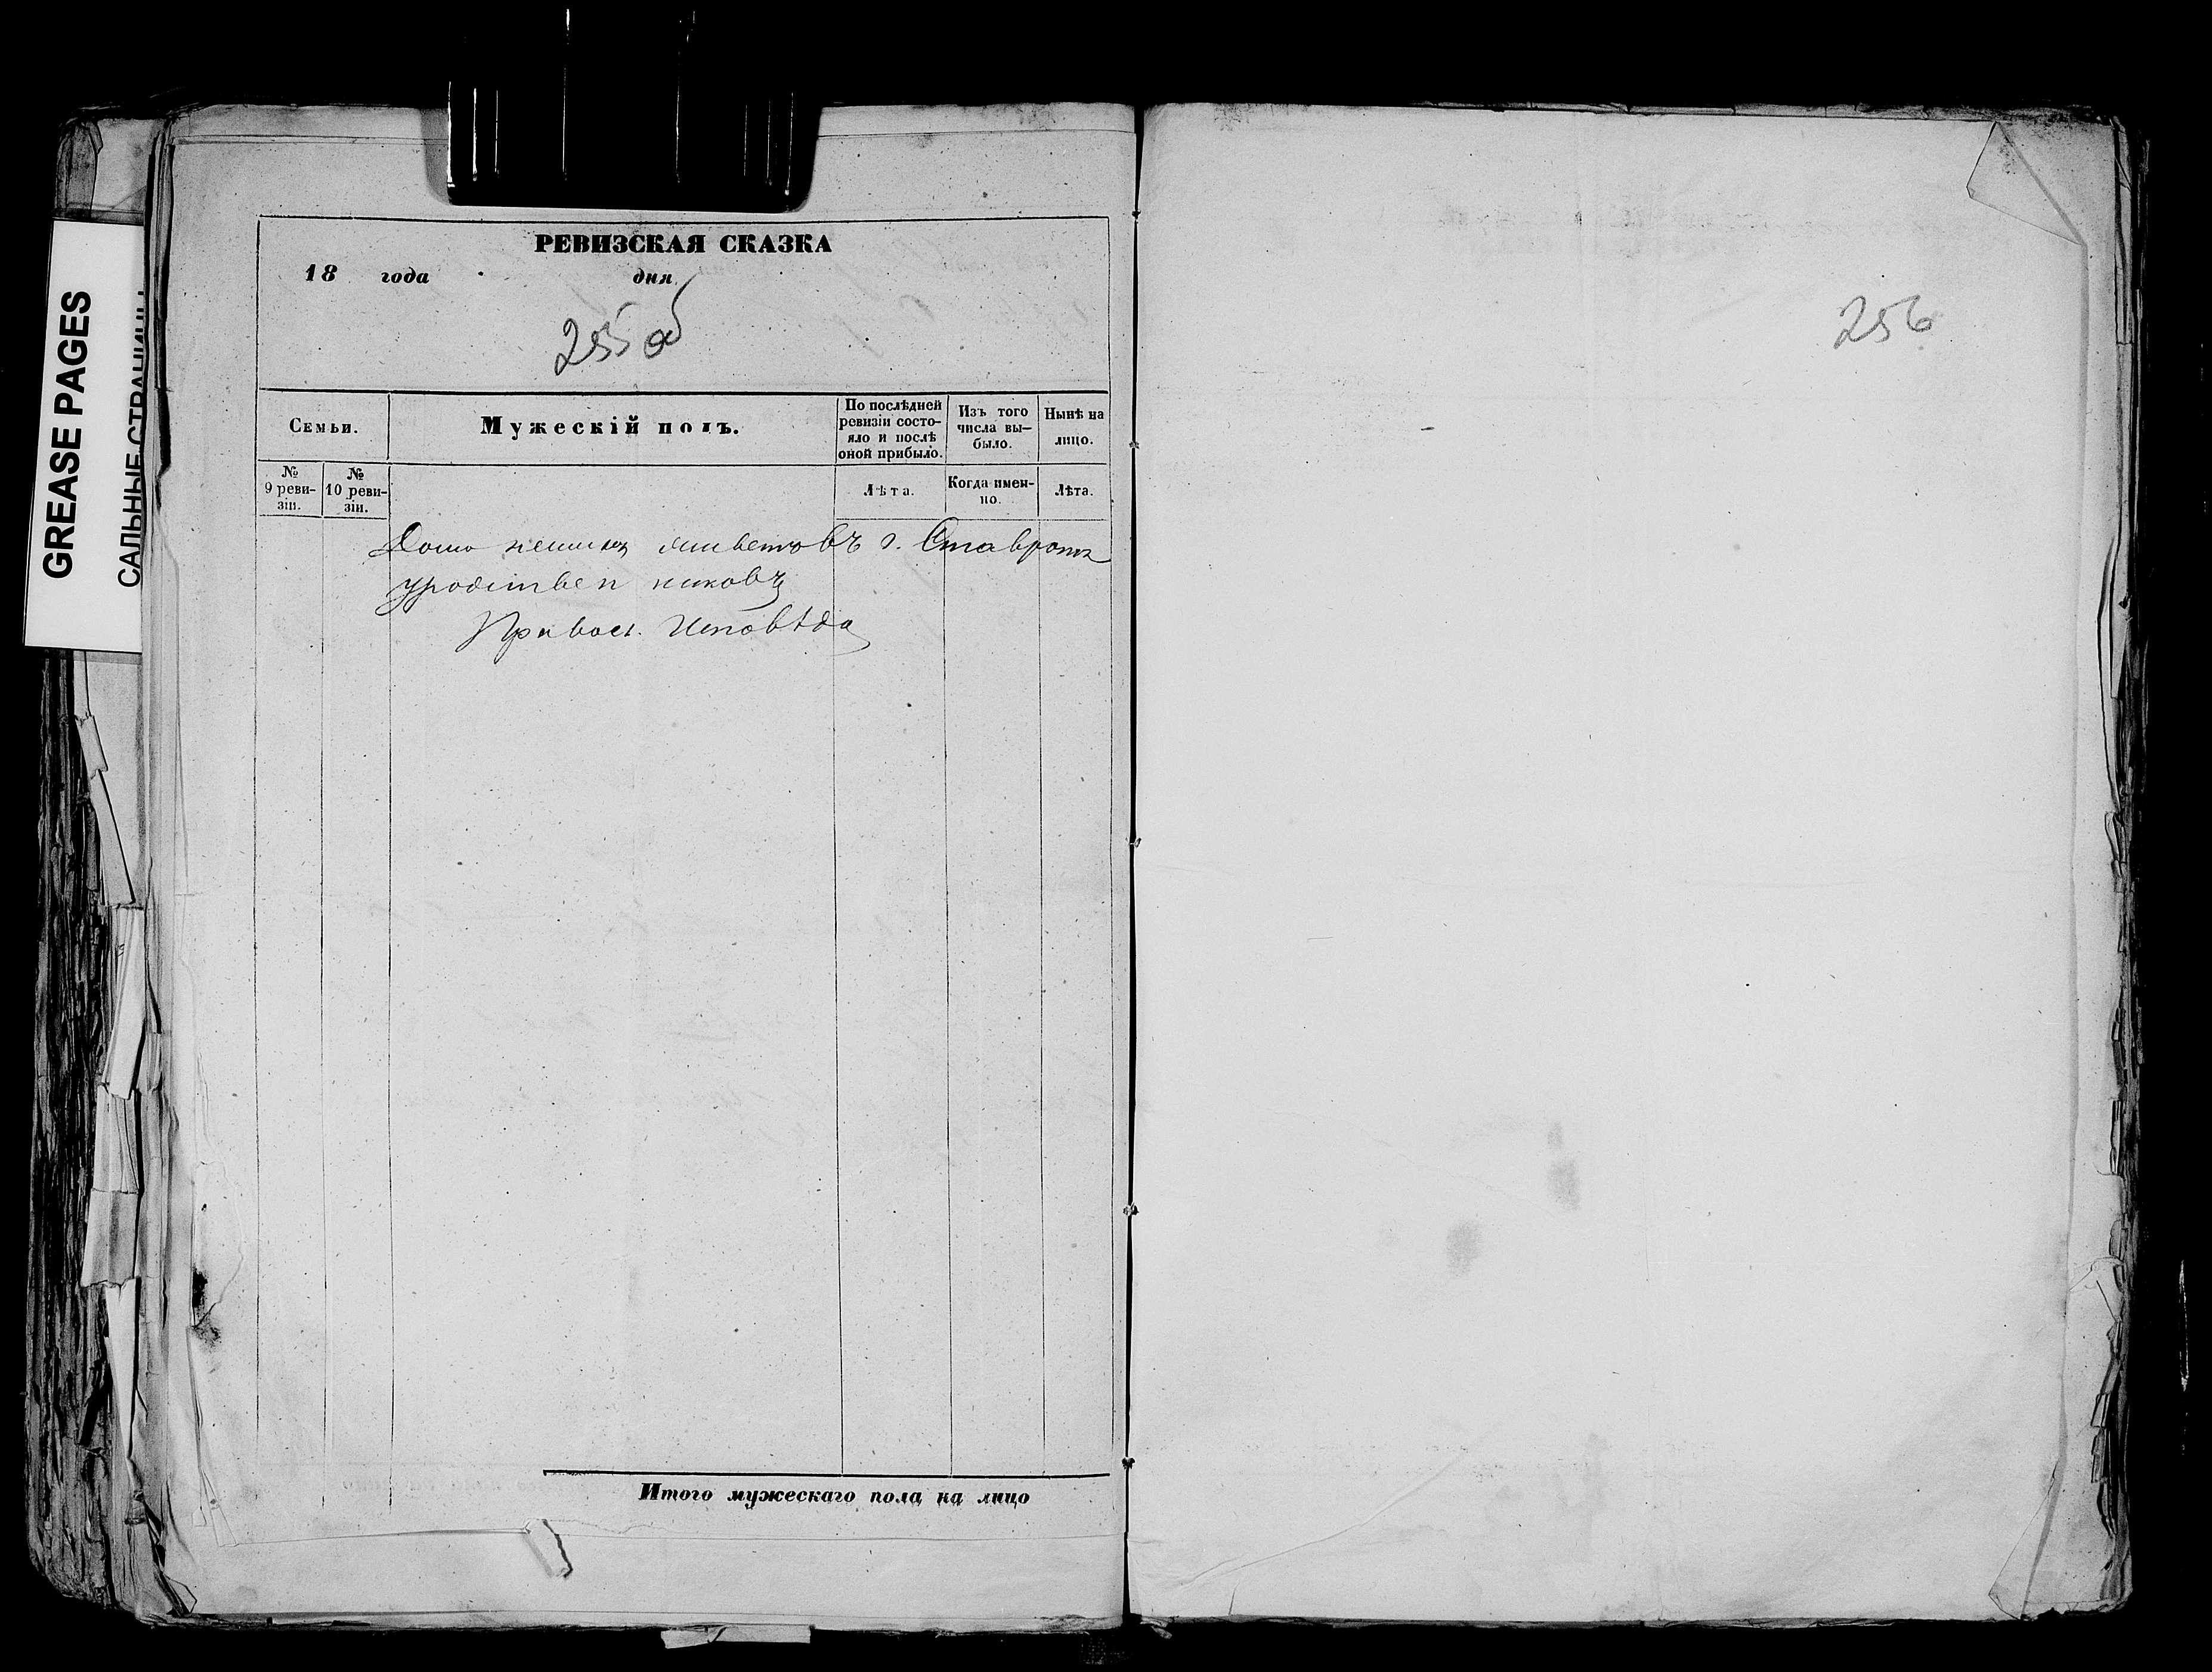 GREASE PAGES
САЛЬНЫЕ СТРАНИЦЫ
РЕВИЗСКАЯ СКАЗКА
18 года дня
255 об
Семьи.
Мужескій полъ.
По послѣдней ревизіи состо-
яло и послѣ
оной прибыло.
Изъ того
числа вы-
было.
Нынѣ на
лицо.
№
9 реви-
зіи.
№
10 реви-
зіи.
Лѣта.
Когда имен-
но.
Лѣта.
г.
уродствен никовъ
Правос. Исповѣда
Итого мужескаго пола на лицо
256